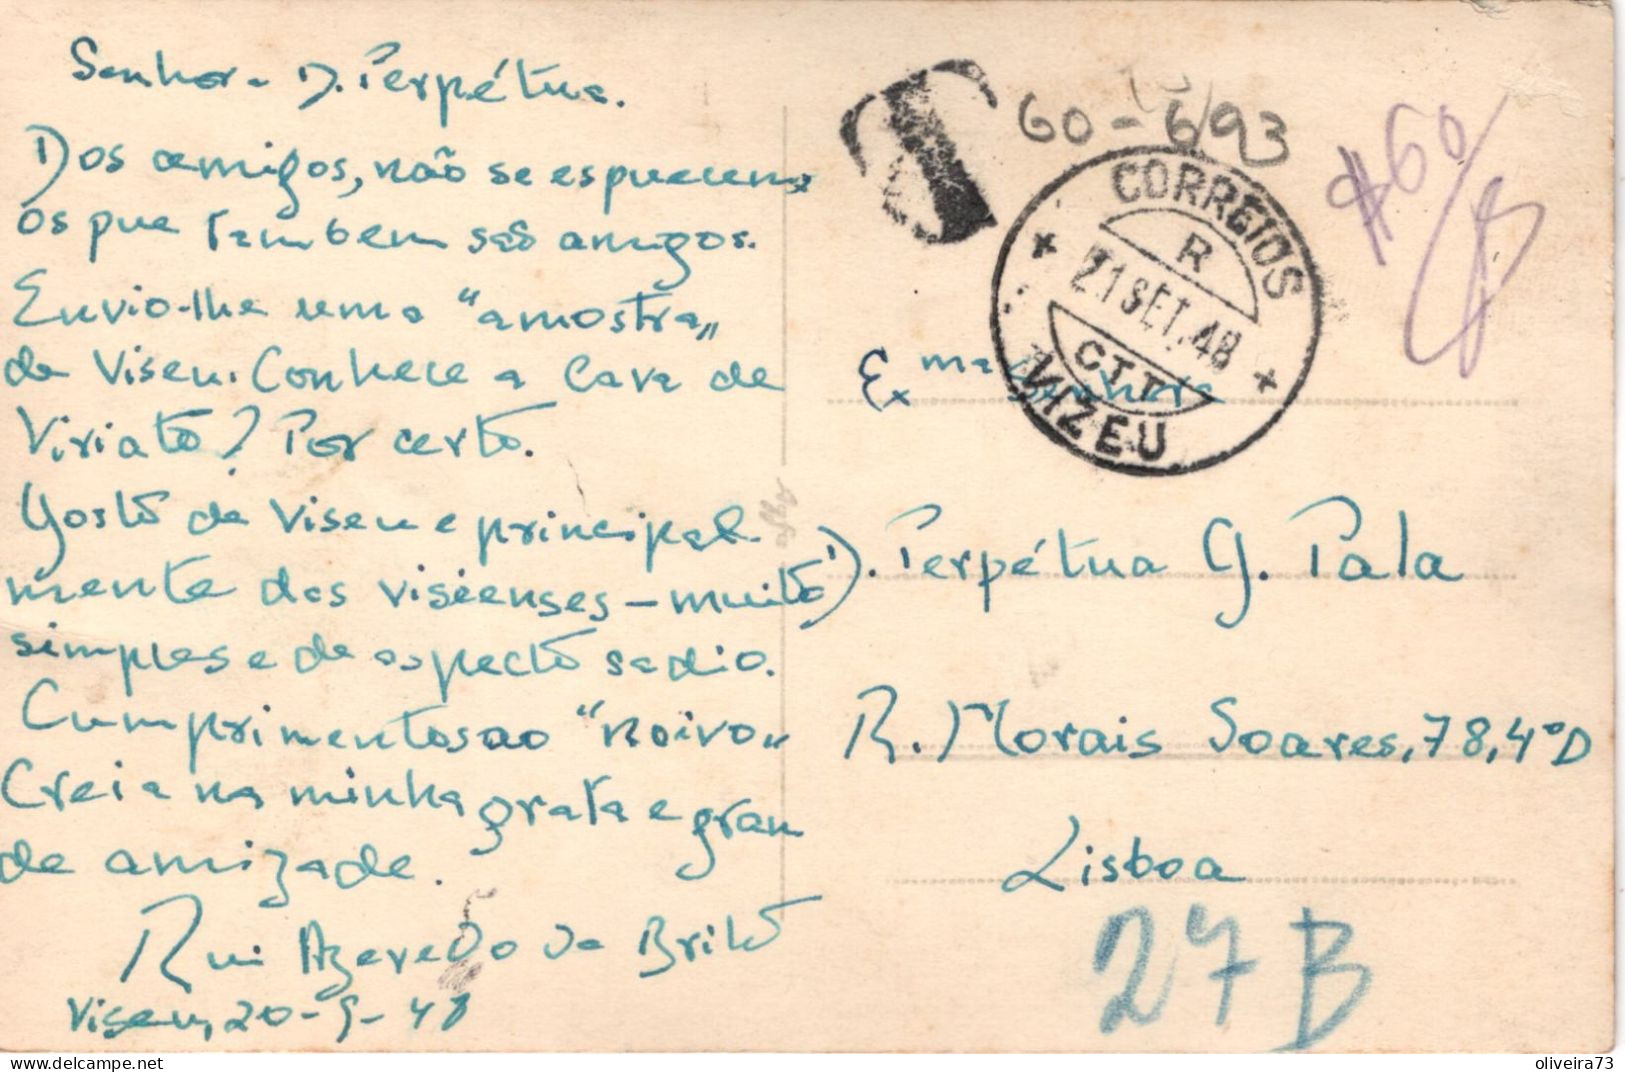 Senhora D. Perpétua.
Dos amigos, não se esquecem
os que também são amigos.
Envio-lhe uma "amostra„
de Viseu. Conhece a Cava de
Viriato? Por certo.
Gosto de Viseu e principal-
mente dos viseenses - muito
simples e de aspecto sadio.
Cumprimentos ao "noivo„
Creia na minha grata e gran
de amizade.
Rui Azevedo de Brito
Viseu, 20-9-48
T
60-6/93
$60
CORREIOS
R
21 SET. 48
CTT
VIZEU
Exma Senhora
D. Perpétua G. Pala
R. Morais Soares, 78, 4º D
Lisboa
27 B
oliveira73